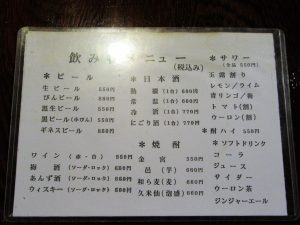 飲み物メニュー
(税込み)
＊ビール
生ビール 550円
びんビール 880円
黒生ビール 550円
黒ビール(小びん) 550円
ギネスビール 880円
ワイン(赤・白) 550円
梅酒(ソーダ・ロック) 660円
あんず酒(ソーダ・ロック) 660円
ウィスキー(ソーダ・ロック) 660円
＊日本酒
熱燗(1合) 600円
常温(1合) 600円
冷酒(1合) 770円
にごり酒(1合) 770円
＊焼酎
金宮 550円
邑(芋) 660円
和ら麦(麦) 660円
久米仙(泡盛) 660円
＊サワー
(全品 550円)
玉露割り
レモン/ライム
青リンゴ/梅
トマト(割)
ウーロン(割)
＊酎ハイ 550円
＊ソフトドリンク
コーラ
ジュース
サイダー
ウーロン茶
ジンジャーエール